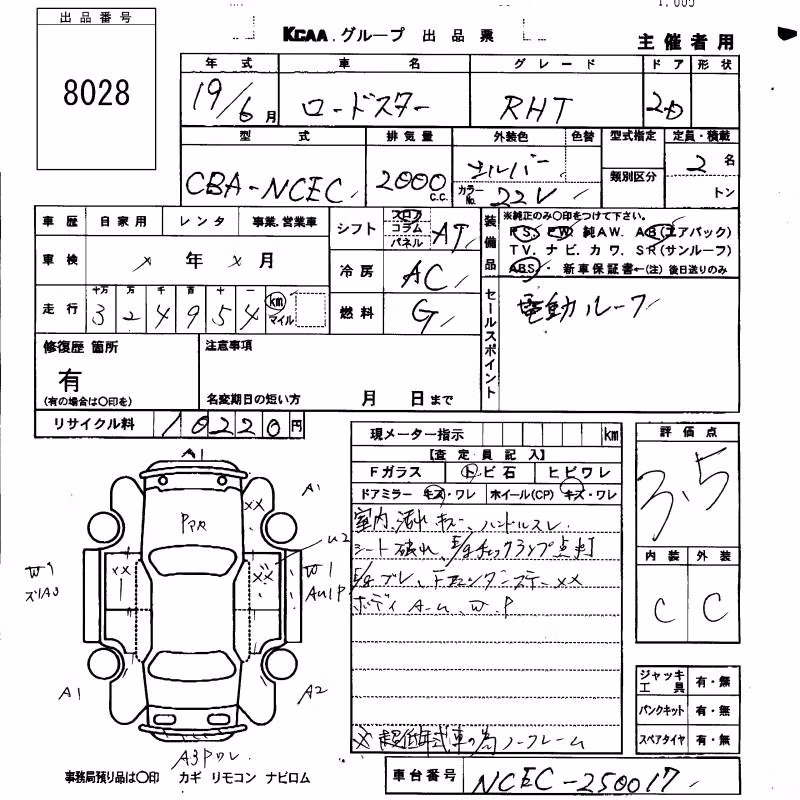 出品番号
8028
KCAA グループ 出品票
主催者用
年式 車名 グレード ドア 形状
19/6月 ロードスター RHT 2D
型式 排気量 外装色 色替 型式指定 定員・積載
CBA-NCEC 2000c.c. シルバー 類別区分 2名
カラーNo. 22V トン
車歴 自家用 レンタ 事業、営業車
シフト フロア コラム パネル AT
装備品 ※純正のみ○印をつけて下さい。
PS. PW. 純AW. AB(エアバック)
TV. ナビ. カワ. SR(サンルーフ)
ABS・新車保証書←(注)後日送りのみ
車検 x年x月
冷房 AC
走行 十万 万 千 百 十 一
324954 km マイル
燃料 G
セールスポイント 電動ルーフ
修復歴 箇所
有
(有の場合は○印を)
注意事項
名変期日の短い方 月 日まで
リサイクル料 10220円
現メーター指示 km
【査定員記入】
Fガラス トビ石 ヒビワレ
ドアミラー キズ・ワレ ホイール(CP) キズ・ワレ
室内、汚れ キズ、ハンドルスレ
シート破れ、E/gチェックランプ点灯
E/gブレ、
ボディ A-u、W、P
※超低年式車の為ノークレーム
評価点
3.5
内装 外装
C C
ジャッキ工具 有・無
パンクキット 有・無
スペアタイヤ 有・無
A1
A1
xx
Pマタ
u2
W1
xx
xx
W1
Au1P
A1
A2
事務局預り品は○印 カギ リモコン ナビロム
車台番号 NCEC-250017